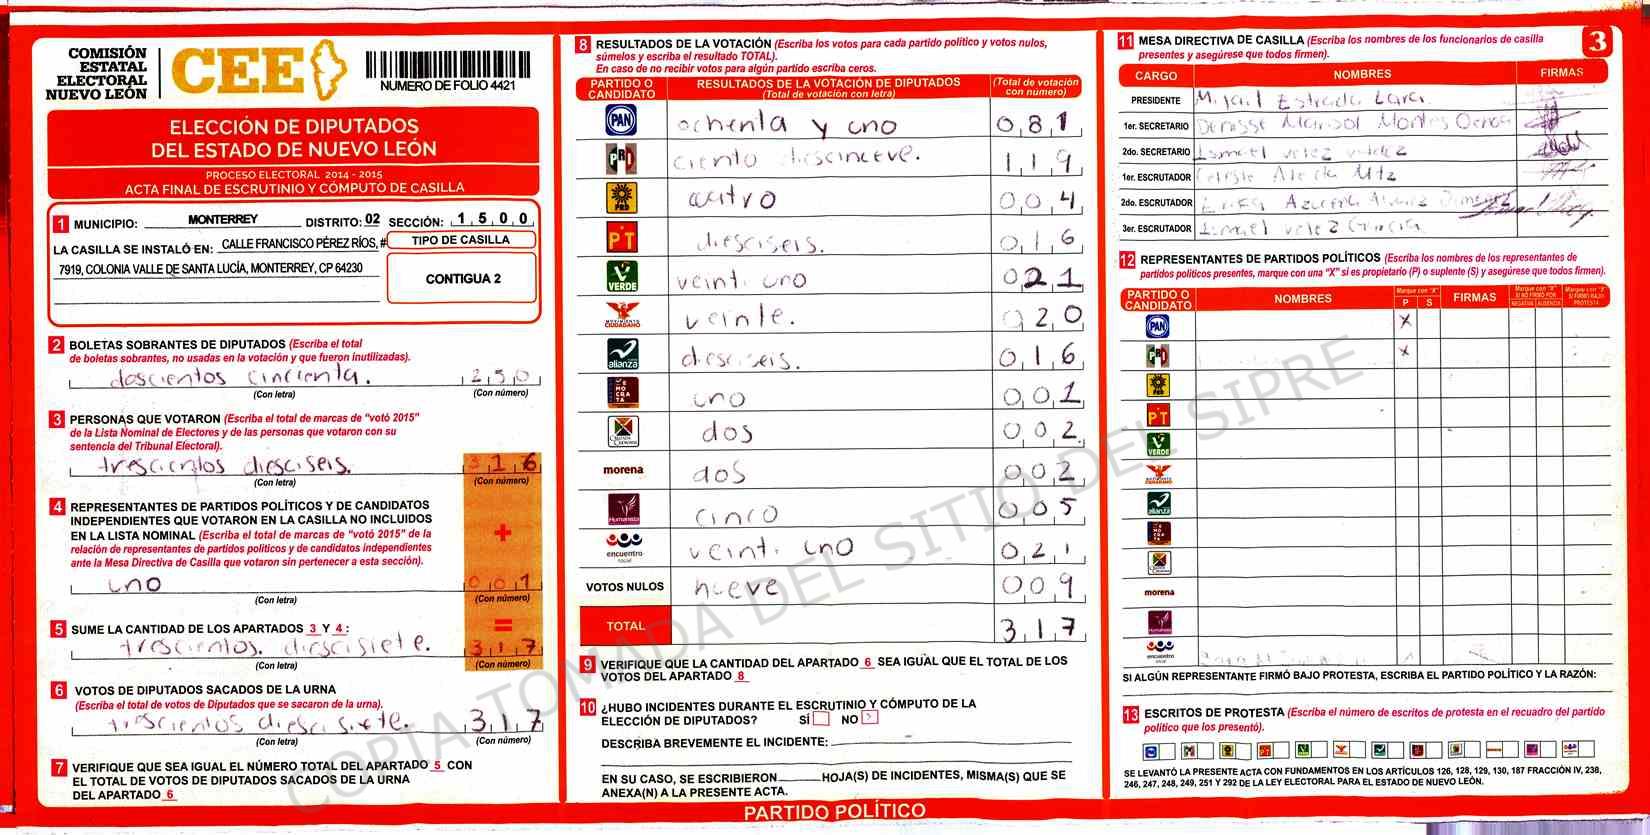 COMISIÓN
ESTATAL
ELECTORAL
NUEVO LEÓN
CEE
NUMERO DE FOLIO 4421
ELECCIÓN DE DIPUTADOS
DEL ESTADO DE NUEVO LEÓN
PROCESO ELECTORAL 2014 - 2015
ACTA FINAL DE ESCRUTINIO Y CÓMPUTO DE CASILLA
1 MUNICIPIO: MONTERREY DISTRITO: 02 SECCIÓN: 1500
LA CASILLA SE INSTALÓ EN: CALLE FRANCISCO PÉREZ RÍOS, #
7919, COLONIA VALLE DE SANTA LUCÍA, MONTERREY, CP 64230
TIPO DE CASILLA
CONTIGUA 2
2 BOLETAS SOBRANTES DE DIPUTADOS (Escriba el total
de boletas sobrantes, no usadas en la votación y que fueron inutilizadas).
doscientos cincienta. 250
(Con letra) (Con número)
3 PERSONAS QUE VOTARON (Escriba el total de marcas de “votó 2015”
de la Lista Nominal de Electores y de las personas que votaron con su
sentencia del Tribunal Electoral).
trescientos diesciseis. 316
(Con letra) (Con número)
4 REPRESENTANTES DE PARTIDOS POLÍTICOS Y DE CANDIDATOS
INDEPENDIENTES QUE VOTARON EN LA CASILLA NO INCLUIDOS
EN LA LISTA NOMINAL (Escriba el total de marcas de “votó 2015” de la
relación de representantes de partidos políticos y de candidatos independientes
ante la Mesa Directiva de Casilla que votaron sin pertenecer a esta sección).
+
uno 001
(Con letra) (Con número)
=
5 SUME LA CANTIDAD DE LOS APARTADOS 3 Y 4:
trescientos. diescisiete. 317
(Con letra) (Con número)
6 VOTOS DE DIPUTADOS SACADOS DE LA URNA
(Escriba el total de votos de Diputados que se sacaron de la urna).
trescientos diescisiete. 317
(Con letra) (Con número)
7 VERIFIQUE QUE SEA IGUAL EL NÚMERO TOTAL DEL APARTADO 5 CON
EL TOTAL DE VOTOS DE DIPUTADOS SACADOS DE LA URNA
DEL APARTADO 6
8 RESULTADOS DE LA VOTACIÓN (Escriba los votos para cada partido político y votos nulos,
súmelos y escriba el resultado TOTAL).
En caso de no recibir votos para algún partido escriba ceros.
PARTIDO O CANDIDATO
RESULTADOS DE LA VOTACIÓN DE DIPUTADOS
(Total de votación con letra)
(Total de votación con número)
PAN ochenta y uno 081
PRD ciento diescinueve. 119
PRD cuatro 004
PT diesciseis. 016
VERDE veinti uno 021
MOVIMIENTO CIUDADANO veinte. 020
alianza diesciseis. 016
DEMOCRATA uno 001
CRUZADA CIUDADANA dos 002
morena dos 002
Humanista cinco 005
encuentro social veinti uno 021
VOTOS NULOS nueve 009
TOTAL 317
9 VERIFIQUE QUE LA CANTIDAD DEL APARTADO 6 SEA IGUAL QUE EL TOTAL DE LOS
VOTOS DEL APARTADO 8
10 ¿HUBO INCIDENTES DURANTE EL ESCRUTINIO Y CÓMPUTO DE LA
ELECCIÓN DE DIPUTADOS? SÍ NO
DESCRIBA BREVEMENTE EL INCIDENTE:
EN SU CASO, SE ESCRIBIERON HOJA(S) DE INCIDENTES, MISMA(S) QUE SE
ANEXA(N) A LA PRESENTE ACTA.
PARTIDO POLÍTICO
3
11 MESA DIRECTIVA DE CASILLA (Escriba los nombres de los funcionarios de casilla
presentes y asegúrese que todos firmen).
CARGO NOMBRES FIRMAS
PRESIDENTE Estrada Lara
1er. SECRETARIO Marisol Montes Ochoa
2do. SECRETARIO Ismael velez
1er. ESCRUTADOR Mtz
2do. ESCRUTADOR Erika Azucena
3er. ESCRUTADOR Ismael velez Garcia
12 REPRESENTANTES DE PARTIDOS POLÍTICOS (Escriba los nombres de los representantes de
partidos políticos presentes, marque con una “X” si es propietario (P) o suplente (S) y asegúrese que todos firmen).
PARTIDO O CANDIDATO NOMBRES Marque con "X" P S FIRMAS
Marque con "X" SI NO FIRMÓ POR NEGATIVA AUSENCIA
Marque con "X" SI FIRMÓ BAJO PROTESTA
PAN X
PRD X
PRD
PT
VERDE
MOVIMIENTO CIUDADANO
alianza
DEMOCRATA
CRUZADA CIUDADANA
morena
Humanista
encuentro social
SI ALGÚN REPRESENTANTE FIRMÓ BAJO PROTESTA, ESCRIBA EL PARTIDO POLÍTICO Y LA RAZÓN:
13 ESCRITOS DE PROTESTA (Escriba el número de escritos de protesta en el recuadro del partido
político que los presentó).
SE LEVANTÓ LA PRESENTE ACTA CON FUNDAMENTOS EN LOS ARTÍCULOS 126, 128, 129, 130, 187 FRACCIÓN IV, 238,
246, 247, 248, 249, 251 Y 292 DE LA LEY ELECTORAL PARA EL ESTADO DE NUEVO LEÓN.
COPIA TOMADA DEL SITIO DEL SIPRE